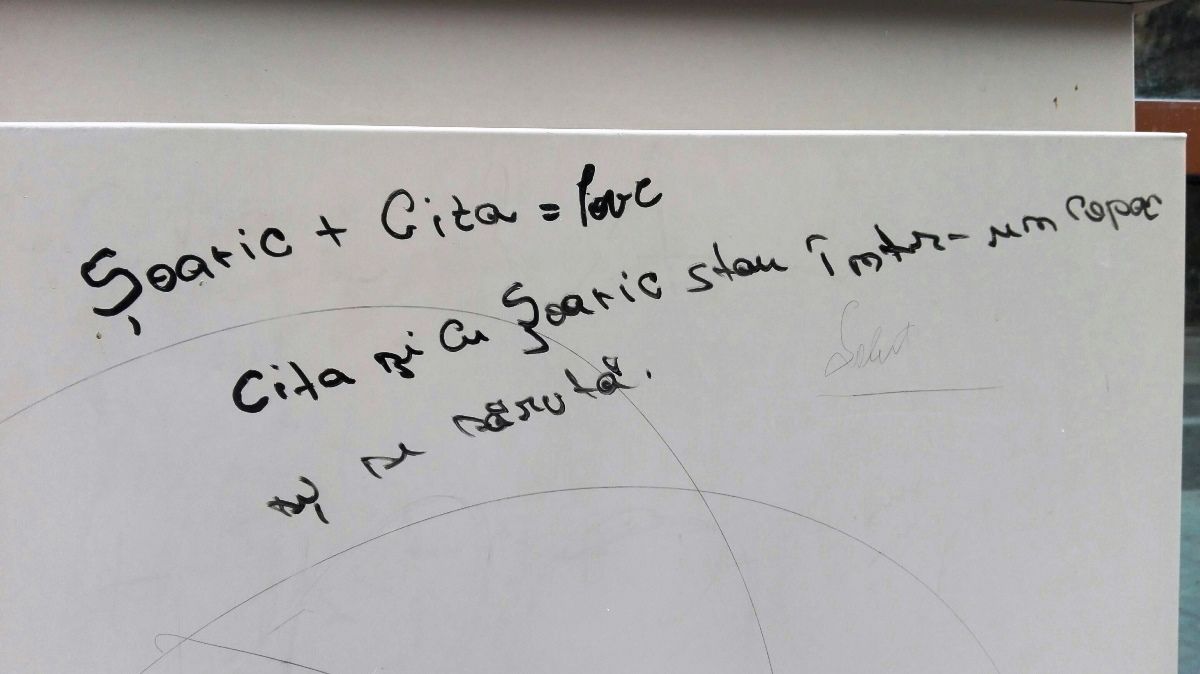 Șoaric + Cita = love
Cita și cu Șoaric stau într-un copac
și se sărută.